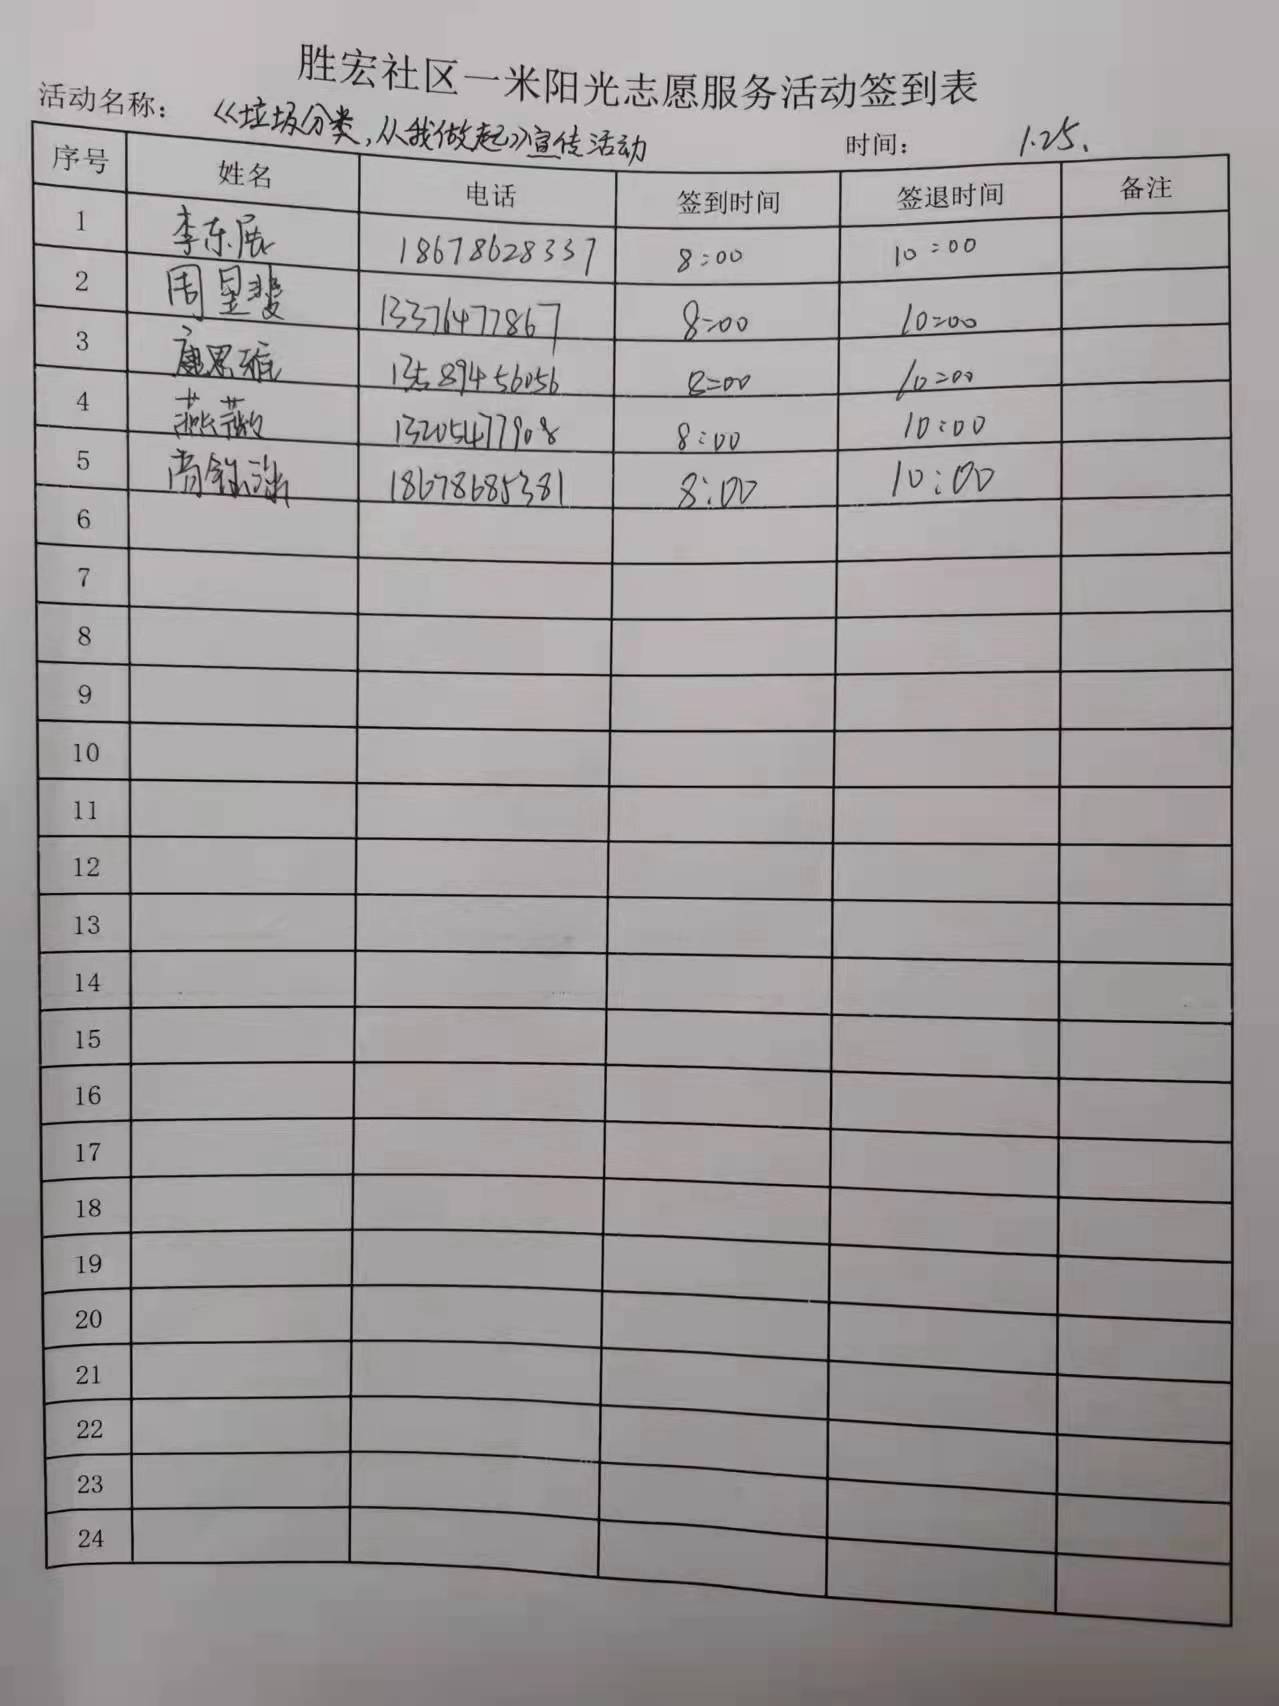 胜宏社区一米阳光志愿服务活动签到表
活动名称： 《垃圾分类,从我做起》宣传活动 时间： 1.25.
序号 姓名 电话 签到时间 签退时间 备注
1 李东展 18678628337 8:00 10:00
2 周昱斐 13376477867 8:00 10:00
3 康思雅 13589456056 8:00 10:00
4 燕薇 13205477908 8:00 10:00
5 18678685381 8:00 10:00
6
7
8
9
10
11
12
13
14
15
16
17
18
19
20
21
22
23
24